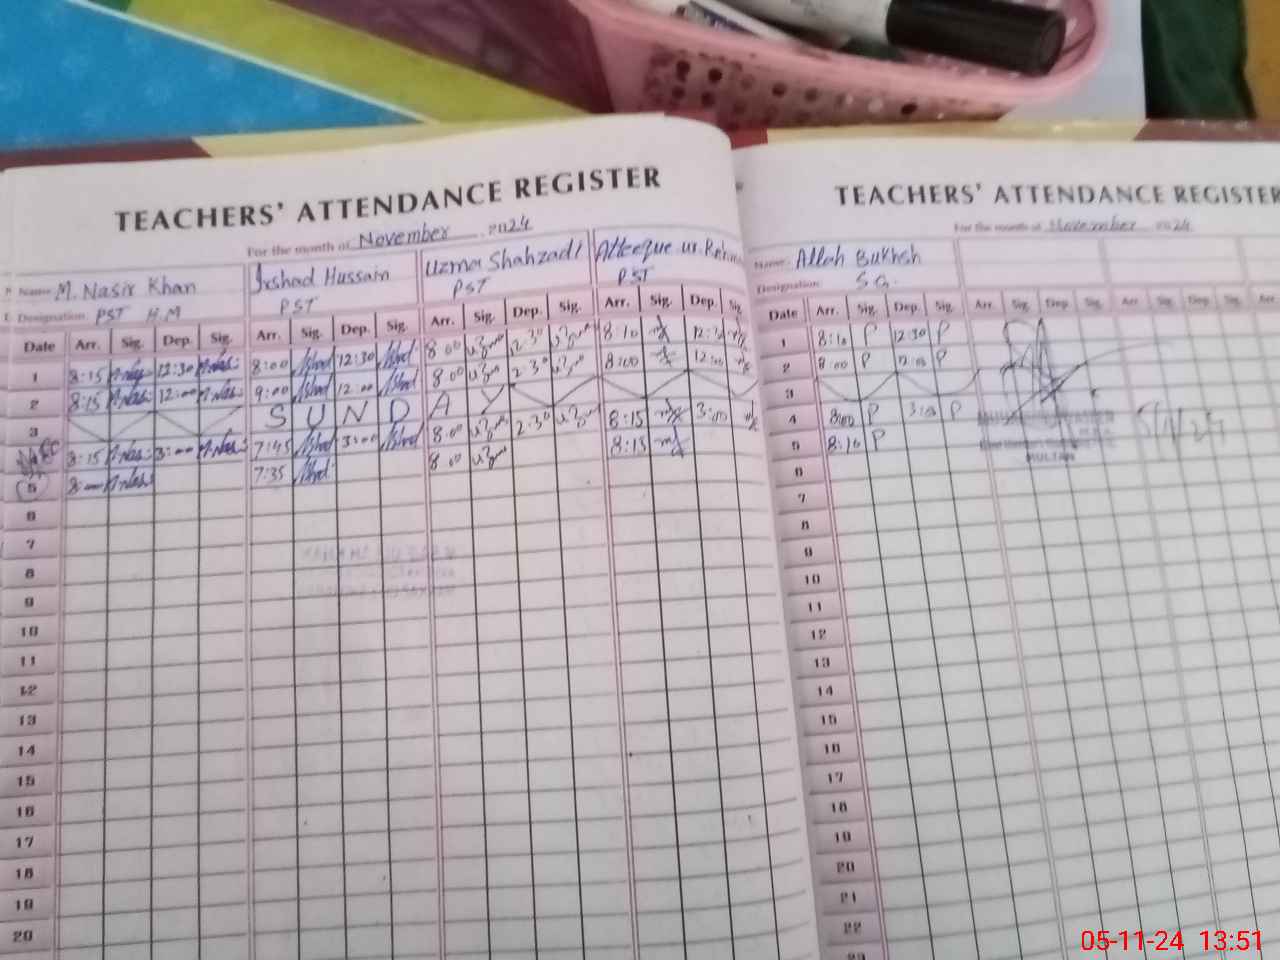 TEACHERS' ATTENDANCE REGISTER
For the month of November 2024
Name M. Nasir Khan Irshad Hussain Uzma Shahzadi Atteeque ur.
Designation PST H.M PST PST PST
Date Arr. Sig. Dep. Sig. Arr. Sig. Dep. Sig. Arr. Sig. Dep. Sig. Arr. Sig. Dep. Sig.
1 8:15 12:30 8:00 12:30 8 00 uzma 12:30 uzma 8:10
2 8:15 12:00 9:00 12:00 8 00 uzma 8:00 12:00
3 SUNDAY
8:15 3:00 7:45 3:00 8:00 uzma 2:30 uzma 8:15 3:00
5 8: 7:35 8 00 uzma 8:15
6
7
8
9
10
11
12
13
14
15
16
17
18
19
20
TEACHERS' ATTENDANCE REGISTER
For the month of November 2024
Name Allah Bukhsh
Designation
Date Arr. Sig. Dep. Sig. Arr. Sig. Dep. Sig. Arr. Sig. Dep. Sig. Arr.
1 8:10 P 12:30 P
2 8:00 P 12:00 P
3
4 8:00 P 3:00 P
5 8:10 P
MULTAN
6
7
8
9
10
11
12
13
14
15
16
17
18
19
20
21
22
23
05-11-24 13:51